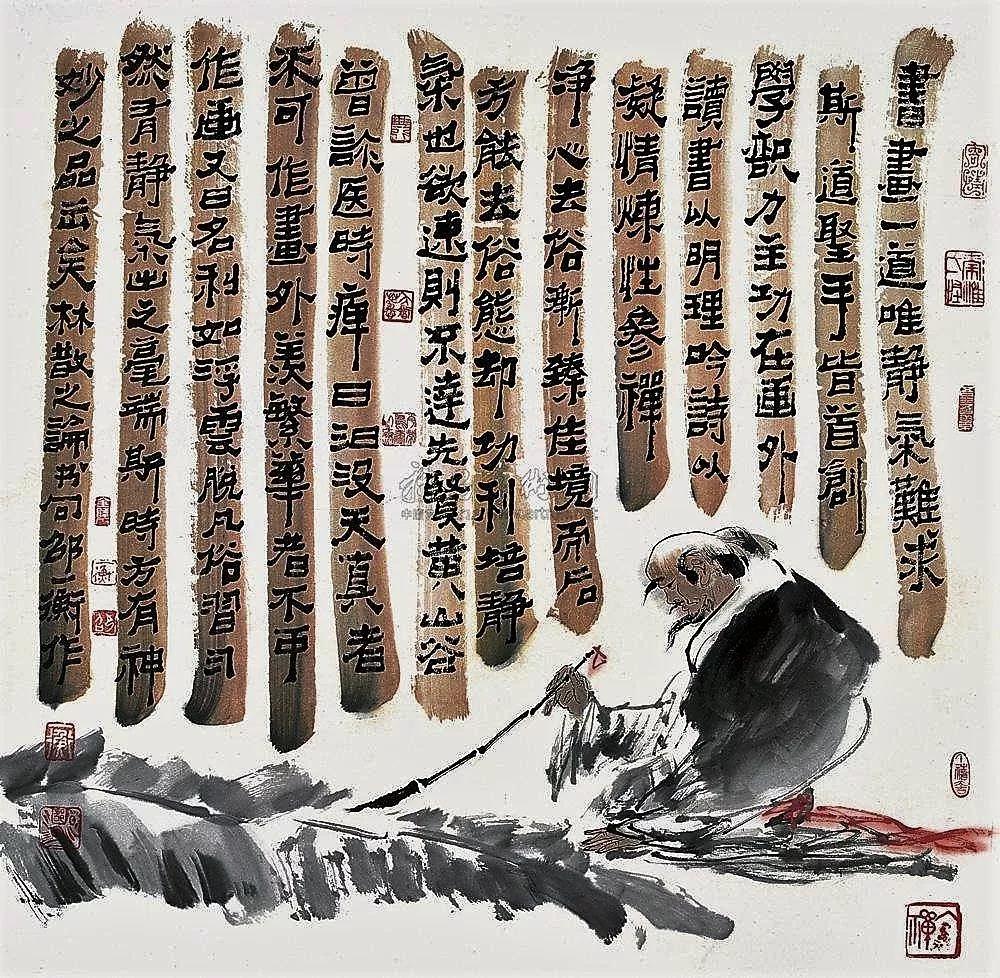 書畫一道唯静氣難求
斯道聖手皆首創
學識力主功在画外
讀書以明理吟詩以
凝情煉性參禪
净心去俗漸臻佳境而后
方能去俗態却功利培静
氣也欲速則不達先賢黄山谷
曾診医時痺曰汩没天真者
不可作畫外羡繁華者不可
作画又曰名利如浮雲脱凡俗習自
然有静氣出之毫端斯時方有神
妙之品出矣林散之論书句邵一衡作